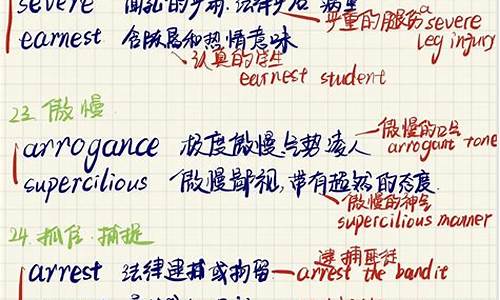 severe
严重的腿伤 a severe leg injury
earnest 含殷勤和热情意味
认真的学生
earnest student
23 傲慢
arrogance 极度傲慢,气势凌人
傲慢的口气
arrogant tone
supercilious 傲慢鄙视,带有超然的态度
傲慢的神气
supercilious manner
24. 抓住、捕捉
arrest 法律逮捕或拘留
逮捕匪徒
arrest the bandit